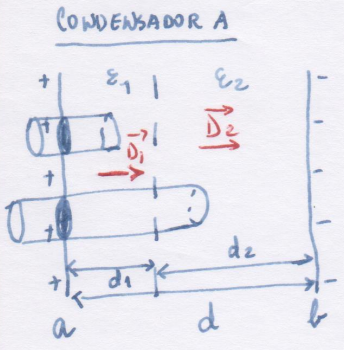 CONDENSADOR A
+ ε₁ ε₂ -
+ D₁ D₂ -
+ -
+ -
+ d₁ d₂ -
a d b